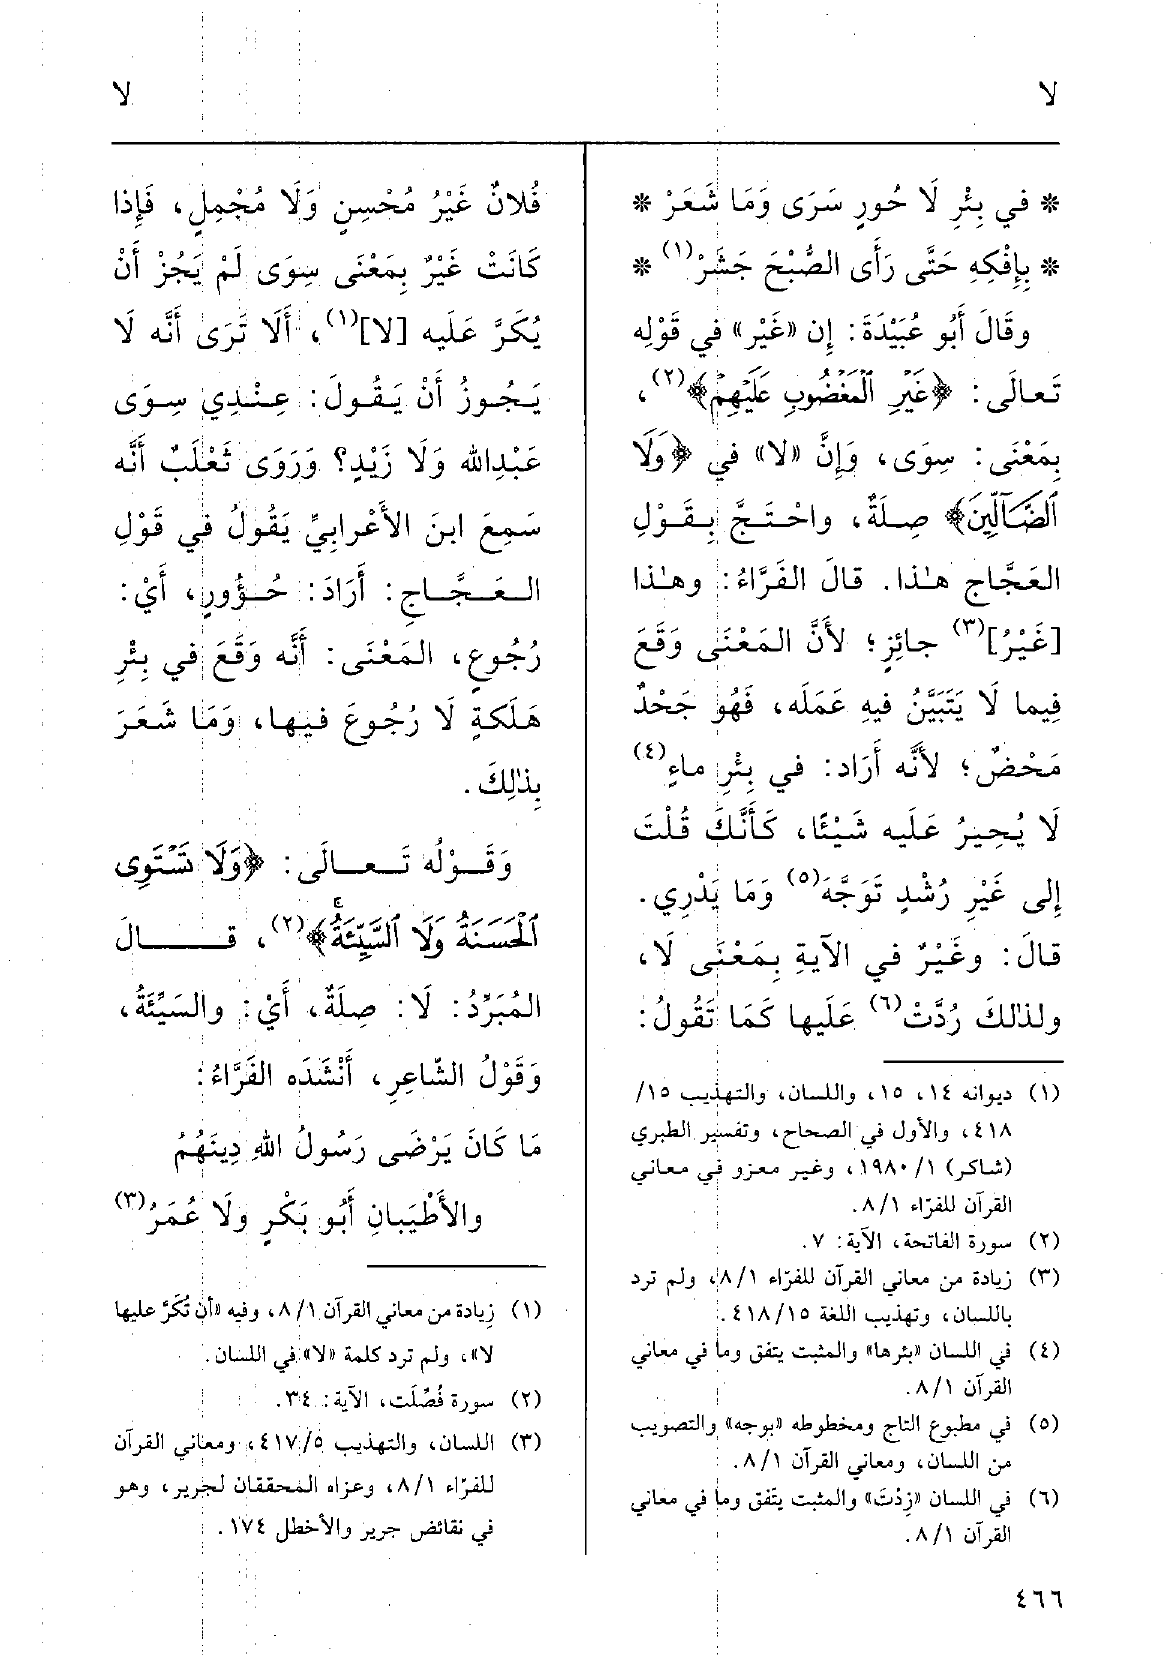 لا
لا
* في بِئْرِ لَا حُورٍ سَرَى وَمَا شَعَرْ *
* بِإِفْكِهِ حَتَّى رَأَى الصُّبْحَ جَشَرْ(١) *
وقَالَ أَبُو عُبَيْدَةَ: إِن «غَيْر» في قَوْلِه
تَعالَى: ﴿غَيْرِ الْمَغْضُوبِ عَلَيْهِمْ﴾(٢)،
بِمَعْنَى: سِوَى، وَإِنَّ «لا» في ﴿وَلَا
الضَّآلِّينَ﴾ صِلَةٌ، واحْتَجَّ بِقَوْلِ
العَجَّاج هٰذا. قالَ الفَرَّاءُ: وهٰذا
[غَيْرُ](٣) جائِزٍ؛ لأنَّ المَعْنَى وَقَعَ
فِيما لَا يَتَبَيَّنُ فيه عَمَلَه، فَهُو جَحْدٌ
مَحْضٌ؛ لأنَّه أَرَاد: في بِئْرِ ماءٍ(٤)
لَا يُحِيرُ عَلَيه شَيْئًا، كَأَنَّكَ قُلْتَ
إلى غَيْرِ رُشْدٍ تَوَجَّهَ(٥) وَمَا يَدْرِي.
قالَ: وغَيْرٌ في الآيةِ بِمَعْنَى لَا،
ولذٰلكَ رُدَّتْ(٦) عَلَيها كَمَا تَقُولُ:
(١) ديوانه ١٤، ١٥، واللسان، والتهذيب ١٥/
٤١٨، والأول في الصحاح، وتفسير الطبري
(شاكر) ١/ ١٩٨٠، وغير معزو في معاني
القرآن للفرّاء ٨/١.
(٢) سورة الفاتحة، الآية: ٧.
(٣) زيادة من معاني القرآن للفرّاء ٨/١، ولم ترد
باللسان، وتهذيب اللغة ٤١٨/١٥.
(٤) في اللسان «بئرها» والمثبت يتفق وما في معاني
القرآن ٨/١.
(٥) في مطبوع التاج ومخطوطه «بوجه» والتصويب
من اللسان، ومعاني القرآن ٨/١.
(٦) في اللسان «زِدْتَ» والمثبت يتّفق وما في معاني
القرآن ٨/١.
فُلانٌ غَيْرُ مُحْسِنٍ وَلَا مُجْمِلٍ، فَإِذا
كَانَتْ غَيْرٌ بِمَعْنَى سِوَى لَمْ يَجُزْ أَنْ
يُكَرَّ عَلَيه [لا](١)، أَلَا تَرَى أَنَّه لَا
يَجُوزُ أَنْ يَقُولَ: عِنْدِي سِوَى
عَبْدِالله وَلَا زَيْدٍ؟ وَرَوَى ثَعْلَبٌ أَنَّه
سَمِعَ ابنَ الأَعْرابِيِّ يَقُولُ في قَوْلِ
العَجَّاجِ: أَرَادَ: حُؤُورٍ، أَيْ:
رُجُوعٍ، المَعْنَى: أَنَّه وَقَعَ في بِئْرِ
هَلَكَةٍ لَا رُجُوعَ فيها، وَمَا شَعَرَ
بِذٰلِكَ.
وَقَوْلُه تَعالَى: ﴿وَلَا تَسْتَوِى
الْحَسَنَةُ وَلَا السَّيِّئَةُ﴾(٢)، قَالَ
المُبَرِّدُ: لَا: صِلَةٌ، أَيْ: والسَيِّئَةُ،
وَقَوْلُ الشّاعِرِ، أَنْشَدَه الفَرَّاءُ:
مَا كَانَ يَرْضَى رَسُولُ اللهِ دِينَهُمُ
والأَطْيَبانِ أَبُو بَكْرٍ ولَا عُمَرُ(٣)
(١) زيادة من معاني القرآن ٨/١، وفيه «أن تُكَرَّ عليها
لا»، ولم ترد كلمة «لا» في اللسان.
(٢) سورة فُصِّلَت، الآية: ٣٤.
(٣) اللسان، والتهذيب ٤١٧/٥، ومعاني القرآن
للفرّاء ٨/١، وعزاه المحققان لجرير، وهو
في نقائض جرير والأخطل ١٧٤.
٤٦٦